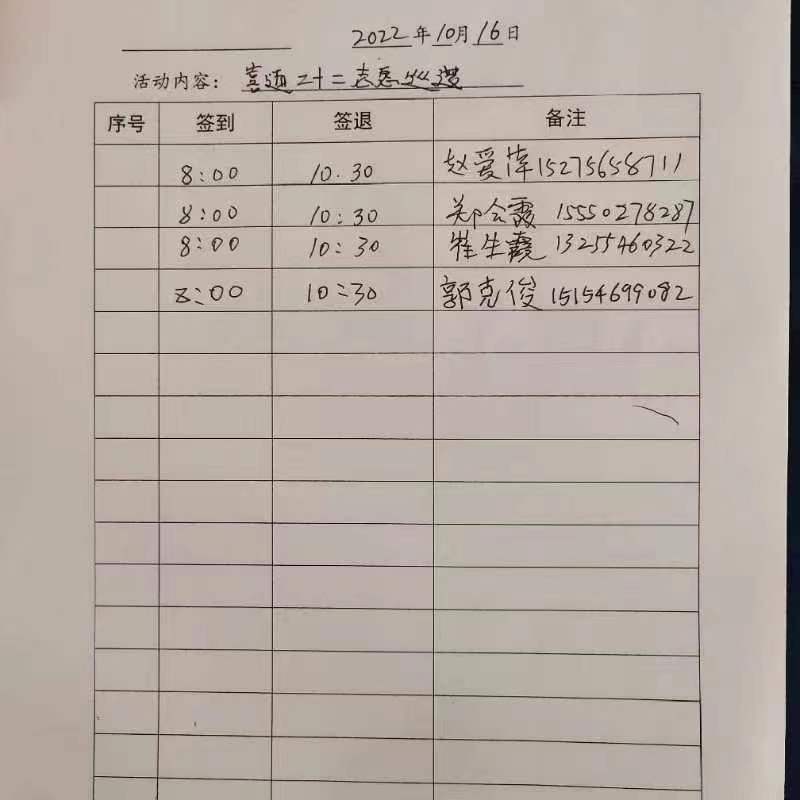 2022年10月16日
活动内容：喜迎二十二志愿巡逻
序号 签到 签退 备注
8:00 10.30 赵爱萍15275658711
8:00 10:30 郑会霞 15550278287
8:00 10:30 生霞 13255460322
8:00 10:30 郭克俊 15154699082